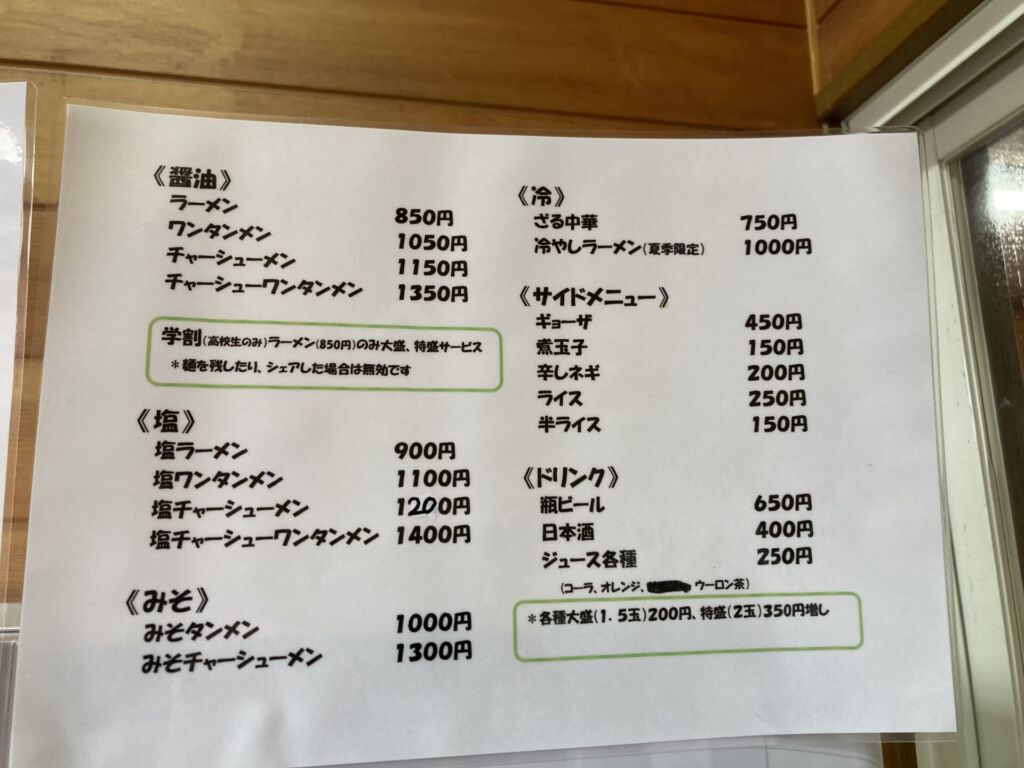 《醤油》
ラーメン 850円
ワンタンメン 1050円
チャーシューメン 1150円
チャーシューワンタンメン 1350円
学割(高校生のみ)ラーメン(850円)のみ大盛、特盛サービス
＊麺を残したり、シェアした場合は無効です
《塩》
塩ラーメン 900円
塩ワンタンメン 1100円
塩チャーシューメン 1200円
塩チャーシューワンタンメン 1400円
《みそ》
みそタンメン 1000円
みそチャーシューメン 1300円
《冷》
ざる中華 750円
冷やしラーメン(夏季限定) 1000円
《サイドメニュー》
ギョーザ 450円
煮玉子 150円
辛しネギ 200円
ライス 250円
半ライス 150円
《ドリンク》
瓶ビール 650円
日本酒 400円
ジュース各種 250円
(コーラ、オレンジ、 ウーロン茶)
＊各種大盛(1.5玉)200円、特盛(2玉)350円増し